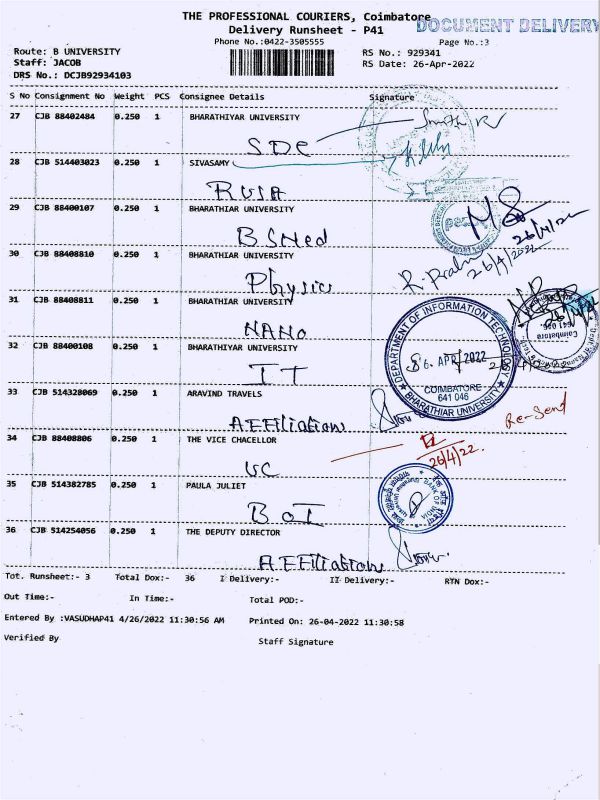 THE PROFESSIONAL COURIERS, Coimbatore
DOCUMENT DELIVERY
Delivery Runsheet - P41
Phone No.:0422-3505555
Page No.:3
Route: B UNIVERSITY
RS No.: 929341
Staff: JACOB
RS Date: 26-Apr-2022
DRS No.: DCJB92934103
S No Consignment No Weight PCS Consignee Details Signature
27 CJB 88402484 0.250 1 BHARATHIYAR UNIVERSITY
SDE
28 CJB 514403023 0.250 1 SIVASAMY
RUSA
29 CJB 88400107 0.250 1 BHARATHIAR UNIVERSITY
26/4/22
B SNed
30 CJB 88408810 0.250 1 BHARATHIAR UNIVERSITY
26/4/2022
Physics
31 CJB 88408811 0.250 1 BHARATHIAR UNIVERSITY
NANO
32 CJB 88400108 0.250 1 BHARATHIAR UNIVERSITY
IT
DEPARTMENT OF INFORMATION TECHNOLOGY
APR 2022
COIMBATORE
641 046
BHARATHIAR UNIVERSITY
33 CJB 514328069 0.250 1 ARAVIND TRAVELS
AFFiliation
Re-Send
34 CJB 88408806 0.250 1 THE VICE CHACELLOR
26/4/22.
VC
35 CJB 514382785 0.250 1 PAULA JULIET
BANK OF INDIA
BoI
36 CJB 514254056 0.250 1 THE DEPUTY DIRECTOR
AFFiliation
Tot. Runsheet:- 3 Total Dox:- 36 I Delivery:- II Delivery:- RTN Dox:-
Out Time:- In Time:- Total POD:-
Entered By :VASUDHAP41 4/26/2022 11:30:56 AM Printed On: 26-04-2022 11:30:58
Verified By Staff Signature